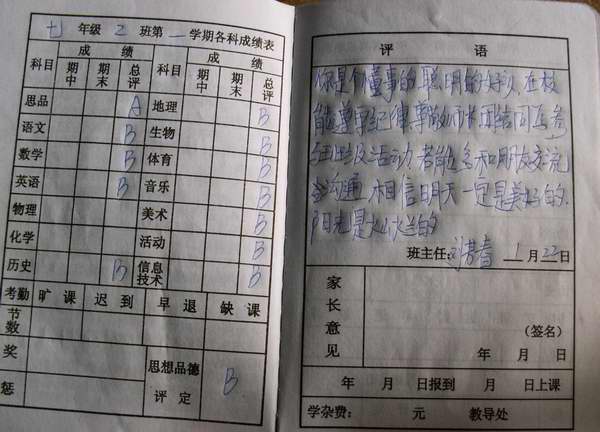 七 年级 2 班第 一 学期各科成绩表
科目 成绩 科目 成绩
期中 期末 总评 期中 期末 总评
思品 A 地理 B
语文 B 生物 B
数学 B 体育 B
英语 B 音乐 B
物理 美术 B
化学 活动 B
历史 B 信息技术 B
考勤 旷课 迟到 早退 缺课
节数
奖惩 思想品德评定 B
评语
你是个懂事的聪明的女孩,在校
能遵守纪律,尊敬师长,团结同学,参
与班级活动,若能多和朋友交流
沟通,相信明天一定是美好的
阳光是灿烂的
班主任: 1 月 22 日
家长意见
(签名)
年 月 日
年 月 日报到 月 日上课
学杂费: 元 教导处